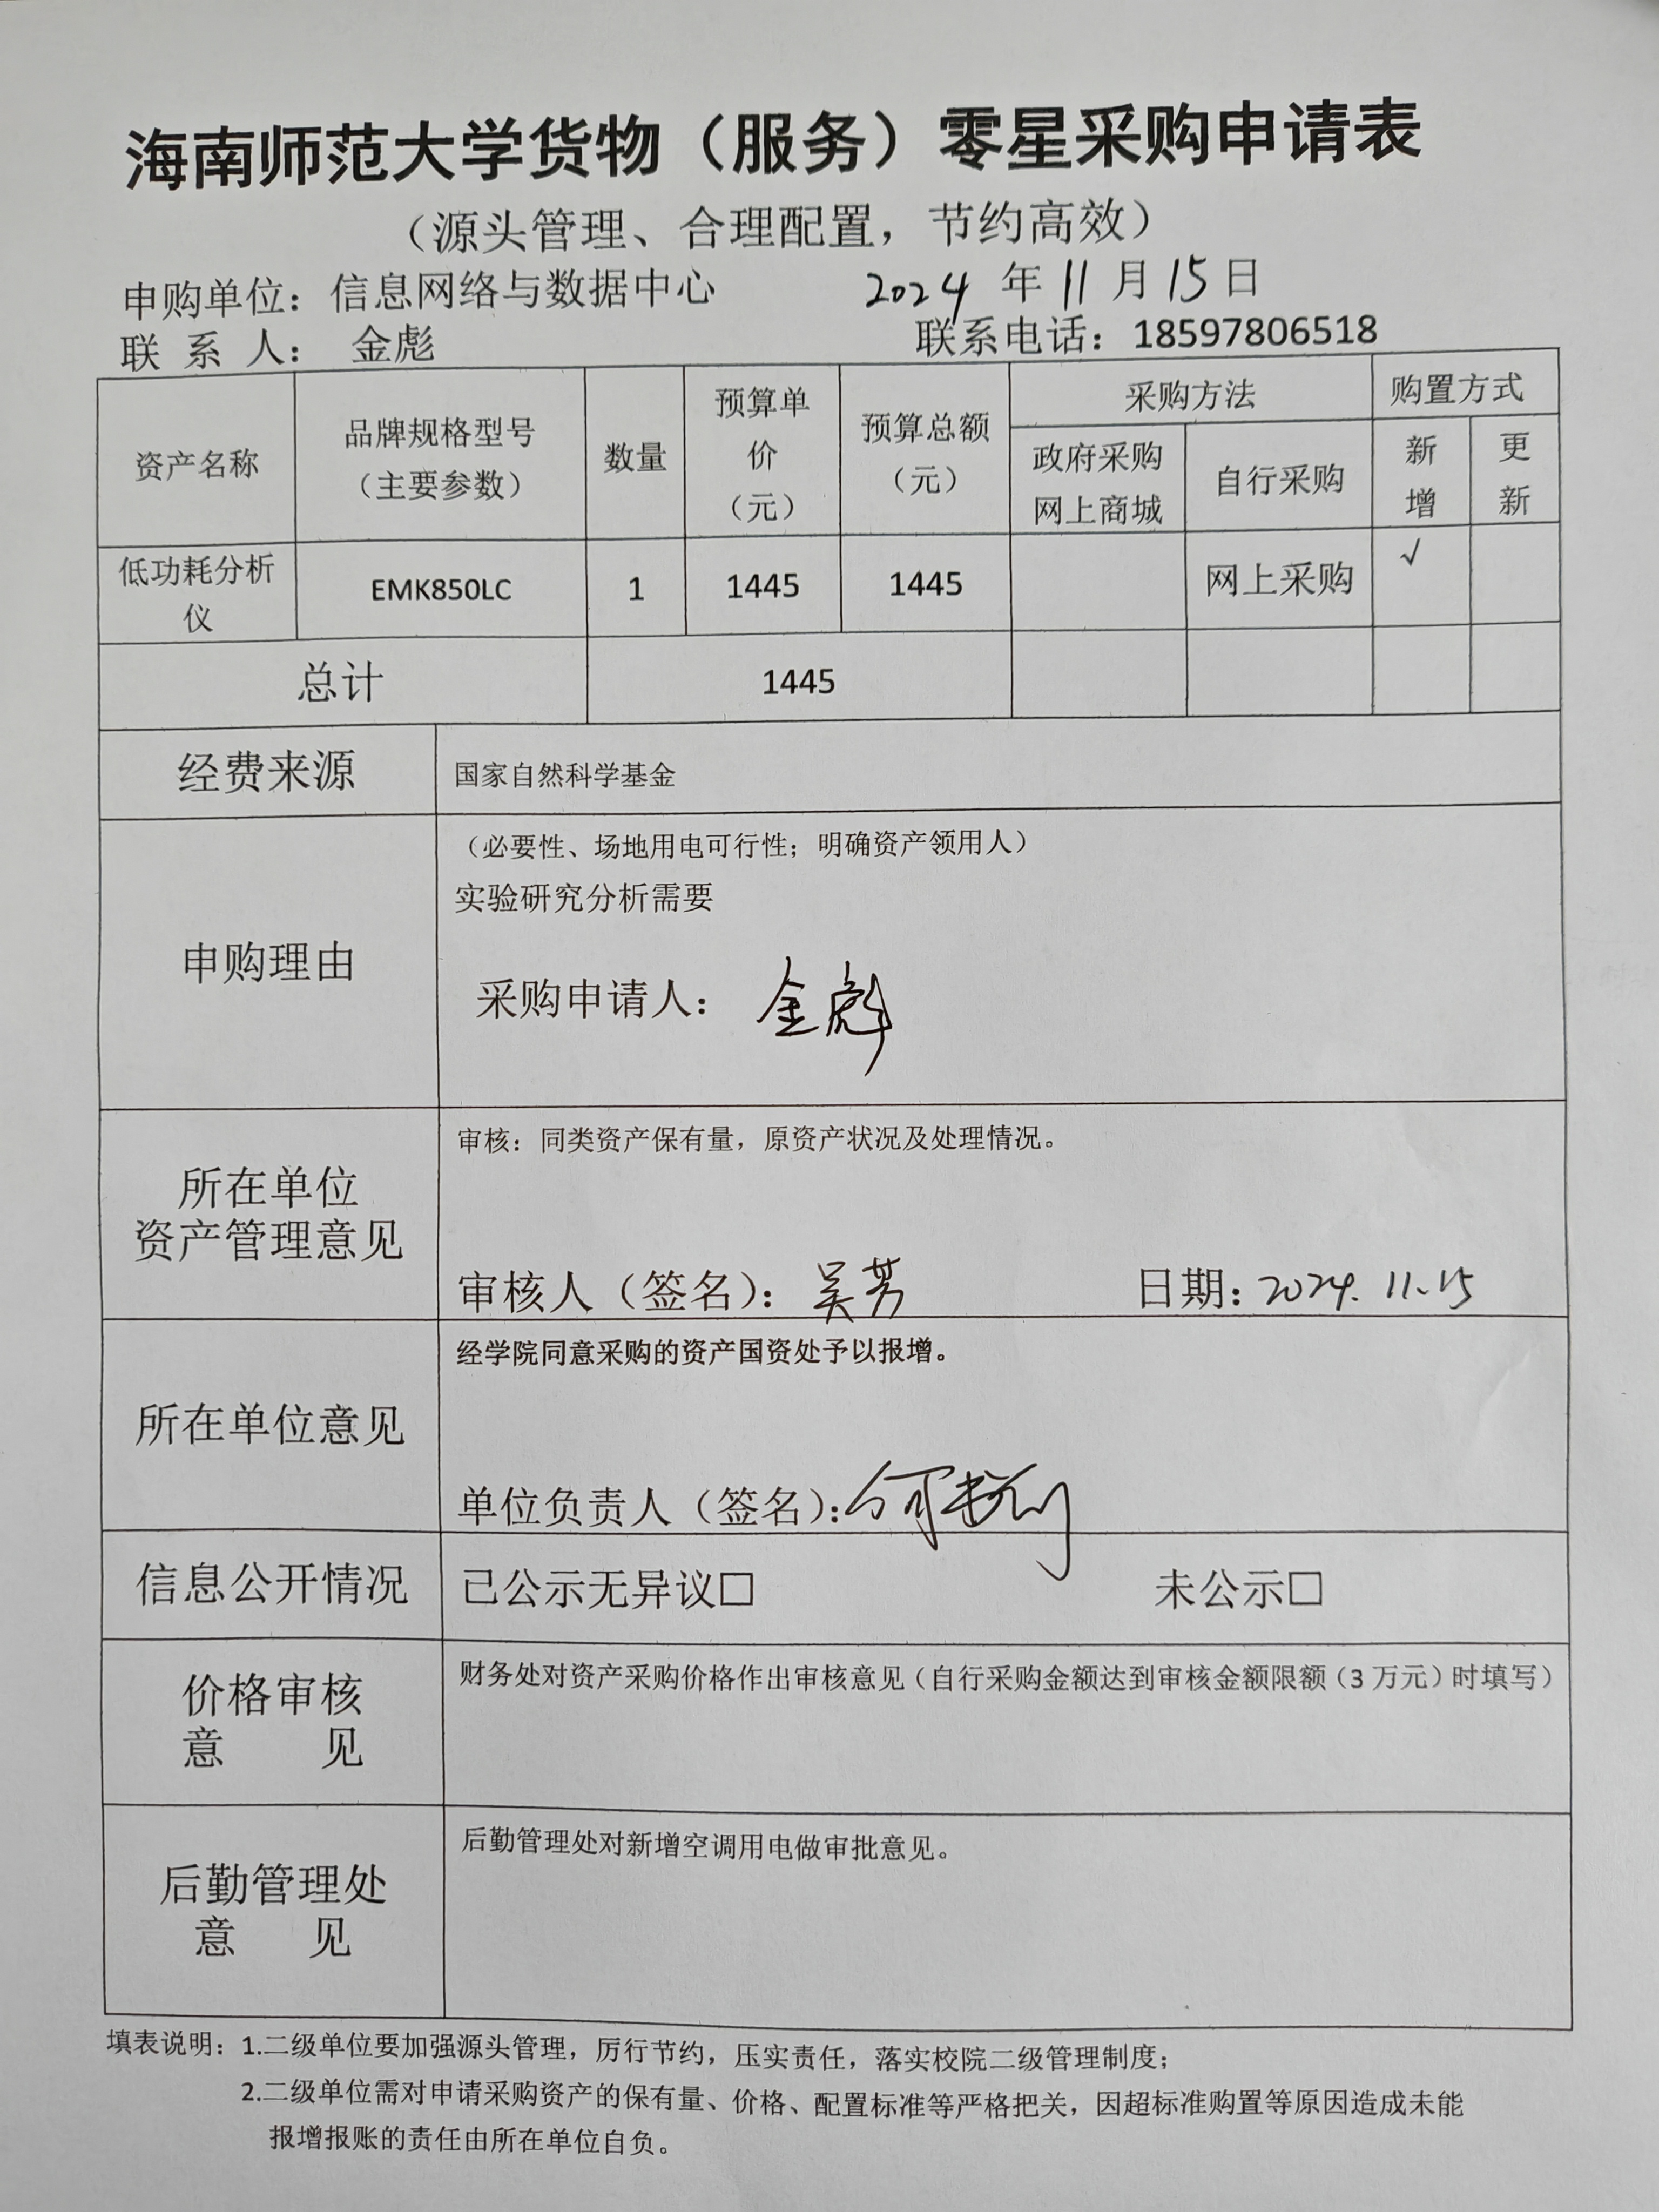 海南师范大学货物（服务）零星采购申请表
（源头管理、合理配置，节约高效）
申购单位：信息网络与数据中心 2024 年 11 月 15 日
联 系 人： 金彪 联系电话：18597806518
资产名称 品牌规格型号（主要参数） 数量 预算单价（元） 预算总额（元） 采购方法 购置方式
政府采购网上商城 自行采购 新增 更新
低功耗分析仪 EMK850LC 1 1445 1445 网上采购 √
总计 1445
经费来源 国家自然科学基金
申购理由
（必要性、场地用电可行性；明确资产领用人）
实验研究分析需要
采购申请人： 金彪
所在单位
资产管理意见
审核：同类资产保有量，原资产状况及处理情况。
审核人（签名）：吴芳 日期：2024.11.15
所在单位意见
经学院同意采购的资产国资处予以报增。
单位负责人（签名）：
信息公开情况 已公示无异议□ 未公示□
价格审核
意 见
财务处对资产采购价格作出审核意见（自行采购金额达到审核金额限额（3 万元）时填写）
后勤管理处
意 见
后勤管理处对新增空调用电做审批意见。
填表说明：1.二级单位要加强源头管理，厉行节约，压实责任，落实校院二级管理制度；
2.二级单位需对申请采购资产的保有量、价格、配置标准等严格把关，因超标准购置等原因造成未能
报增报账的责任由所在单位自负。